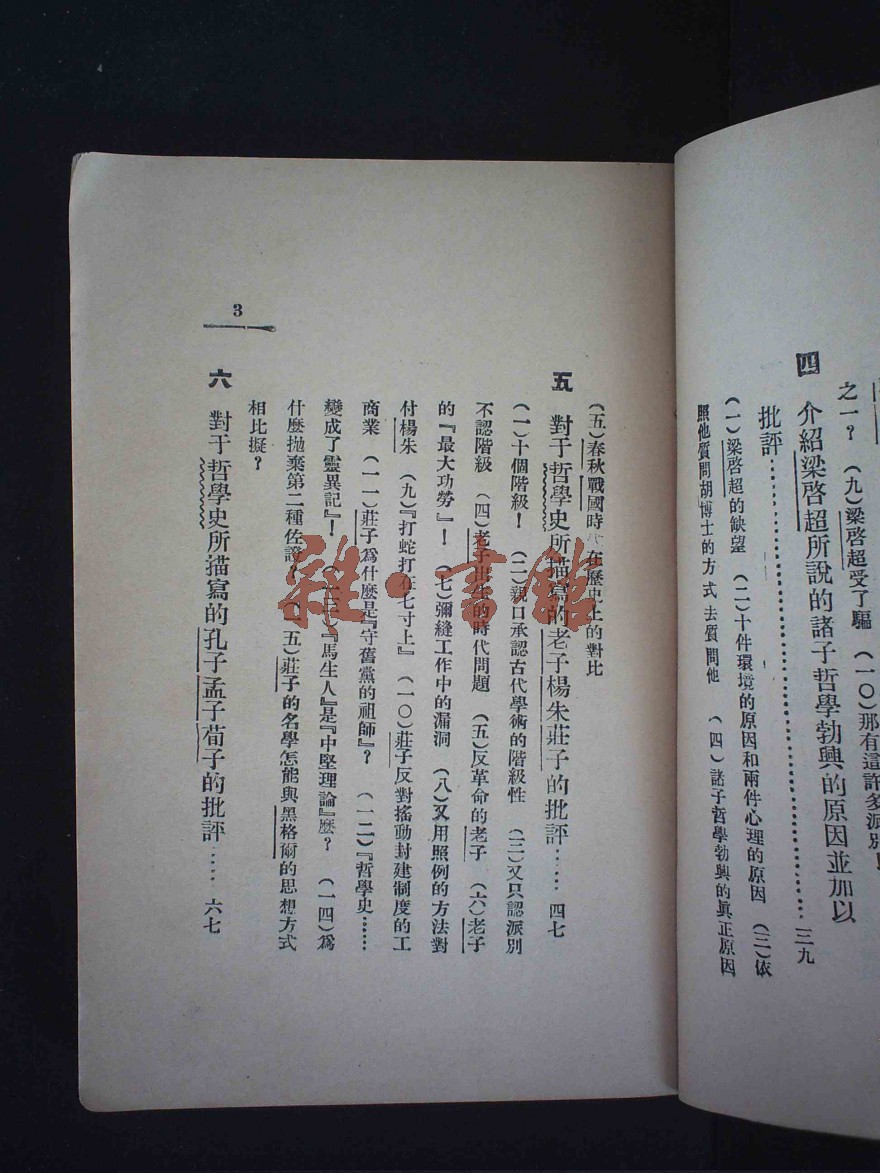 之一？　(九)梁啓超受了騙　(一〇)那有這許多派別！
四　介紹梁啓超所說的諸子哲學勃興的原因並加以
批評……三九
(一)梁啓超的缺望　(二)十件環境的原因和兩件心理的原因　(三)依
照他質問胡博士的方式去質問他　(四)諸子哲學勃興的眞正原因
(五)春秋戰國時代在歷史上的對比
五　對于哲學史所描寫的老子楊朱莊子的批評……四七
(一)十個階級！　(二)親口承認古代學術的階級性　(三)又只認派別
不認階級　(四)老子出生的時代問題　(五)反革命的老子　(六)老子
的『最大功勞』！　(七)彌縫工作中的漏洞　(八)又用照例的方法對
付楊朱　(九)『打蛇打在七寸上』　(一〇)莊子反對搖動封建制度的工
商業　(一一)莊子爲什麼是『守舊黨的祖師』？　(一二)『哲學史……
變成了靈異記』！　(一三)『馬生人』是『中堅理論』麼？　(一四)爲
什麼拋棄第二種佐證？　(一五)莊子的名學怎能與黑格爾的思想方式
相比擬？
六　對于哲學史所描寫的孔子孟子荀子的批評……六七
3
雜·書館